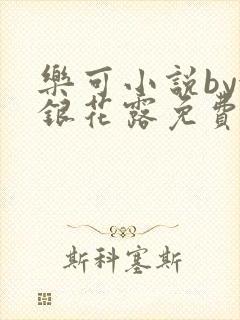 樂可小説by
銀花露免費
斯科塞斯